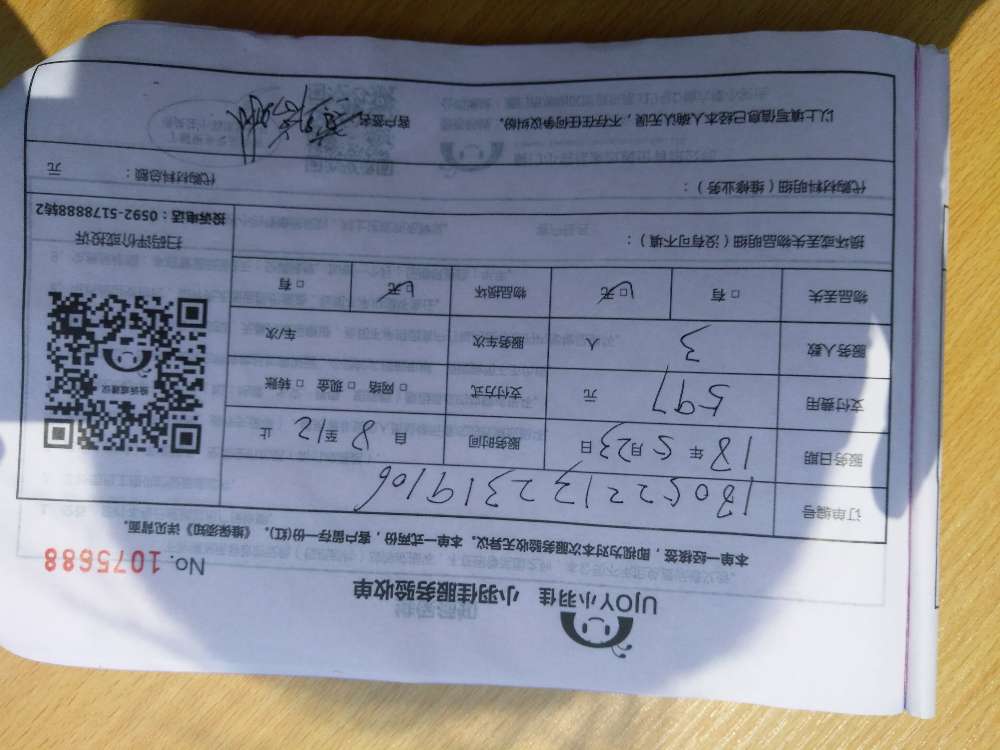 UJOY小羽佳 小羽佳服务验收单
No. 1075688
本单一经核签，即视为对本次服务验收无异议，本单一式两份，客户留存一份(红)，《维保须知》详见背面。
订单编号 180522132319106
服务日期 18年5月23日 服务时间 自8至12止
支付费用 597元 支付方式 □网络 □现金 □转账
服务人数 3人 服务车次 车/次
物品丢失 □有 □无 物品损坏 □无 □有
维保或建议
扫码评价或投诉
投诉电话：0592-5178888转2
损坏或丢失物品明细（没有可不填）：
代购材料明细（维修业务）： 代购材料总额： 元
以上填写信息已经本人确认无误，不存在任何争议纠纷。 客户签名